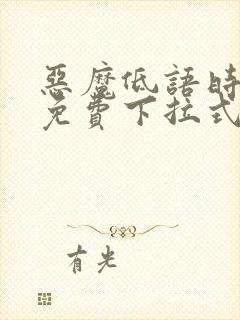 惡魔低語時
免費下拉式
有光